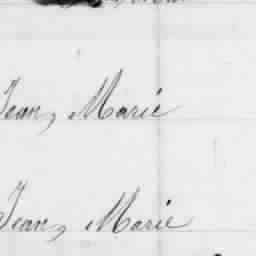 Jean, Marie
Jean, Marie